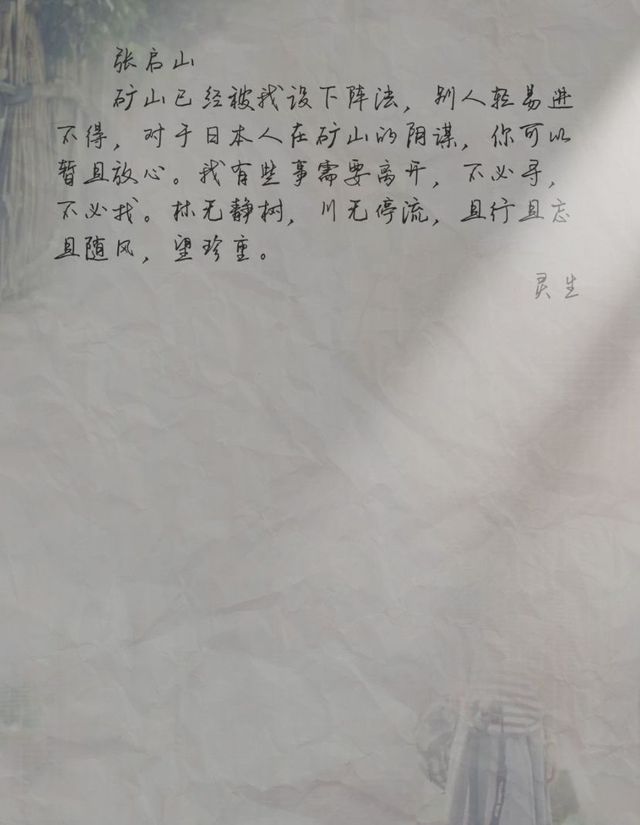 张启山
矿山已经被我设下阵法，别人轻易进
不得，对于日本人在矿山的阴谋，你可以
暂且放心。我有些事需要离开，不必寻，
不必找。林无静树，川无停流，且行且忘
且随风，望珍重。
灵生